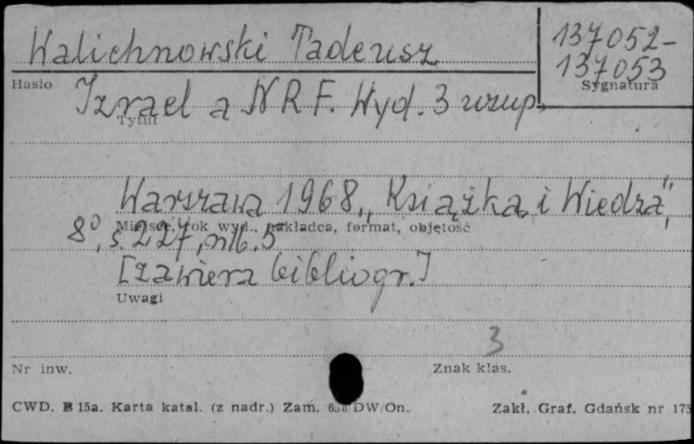 Walichnowski Tadeusz
137052-
137053
Hasło
Sygnatura
Izrael a NRF. Wyd. 3 uzup.
Tytuł
Warszawa 1968 „Książka i Wiedza",
Miejsce, rok wyd., nakładca, format, objętość
8°, s. 227, nlb. 5
[zawiera bibliogr.]
Uwagi
3
Nr inw.
Znak klas.
CWD. B 15a. Karta katal. (z nadr.) Zam. DW/On.
Zakł. Graf. Gdańsk nr 173